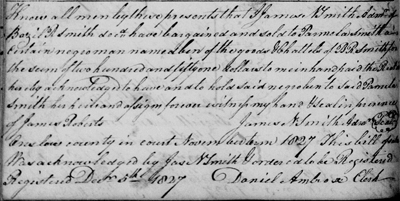 Know all men by these presents that I James N Smith Admr. of
Bazil B Smith decd have bargained and sold to Pamela Smith a
certain negro man named Ben of the goods & Chattels of B B Smith for
the sum of two hundred and fifty one dollars to me in hand paid the Rect
hereby acknowledged to have and to hold said negro Ben to said Pamela
Smith her heirs and assigns forever witness my hand & Seal in presence
of James Roberts James N Smith Admr Seal
Onslow county in court November term 1827 This bill of sale
Was acknowledged by Jas N Smith & ordered to be Registered
Registered Decr 5th 1827 Daniel Ambrose Clerk